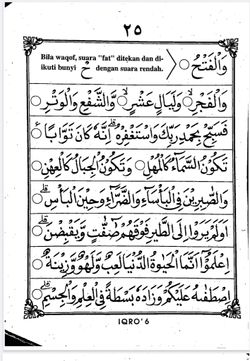 ٢٥
Bila waqof, suara "fat" ditekan dan di-
ikuti bunyi حْ dengan suara rendah.
وَالْفَتْحُ ○
وَالْفَجْرِ ○ وَلَيَالٍ عَشْرٍ ○ وَالشَّفْعِ وَالْوَتْرِ ○
فَسَبِّحْ بِحَمْدِ رَبِّكَ وَاسْتَغْفِرْهُ اِنَّهٗ كَانَ تَوَّابًا ○
تَكُوْنُ السَّمَاۤءُ كَالْمُهْلِ ○ وَتَكُوْنُ الْجِبَالُ كَالْعِهْنِ ○
وَالصّٰبِرِيْنَ فِى الْبَأْسَاۤءِ وَالضَّرَّاۤءِ وَحِيْنَ الْبَأْسِ ○
اَوَلَمْ يَرَوْا اِلَى الطَّيْرِ فَوْقَهُمْ صٰۤفّٰتٍ وَيَقْبِضْنَ ○
اِعْلَمُوْٓا اَنَّمَا الْحَيٰوةُ الدُّنْيَا لَعِبٌ وَّلَهْوٌ وَّزِيْنَةٌ ○
اصْطَفٰىهُ عَلَيْكُمْ وَزَادَهٗ بَسْطَةً فِى الْعِلْمِ وَالْجِسْمِ ○
IQRO' 6